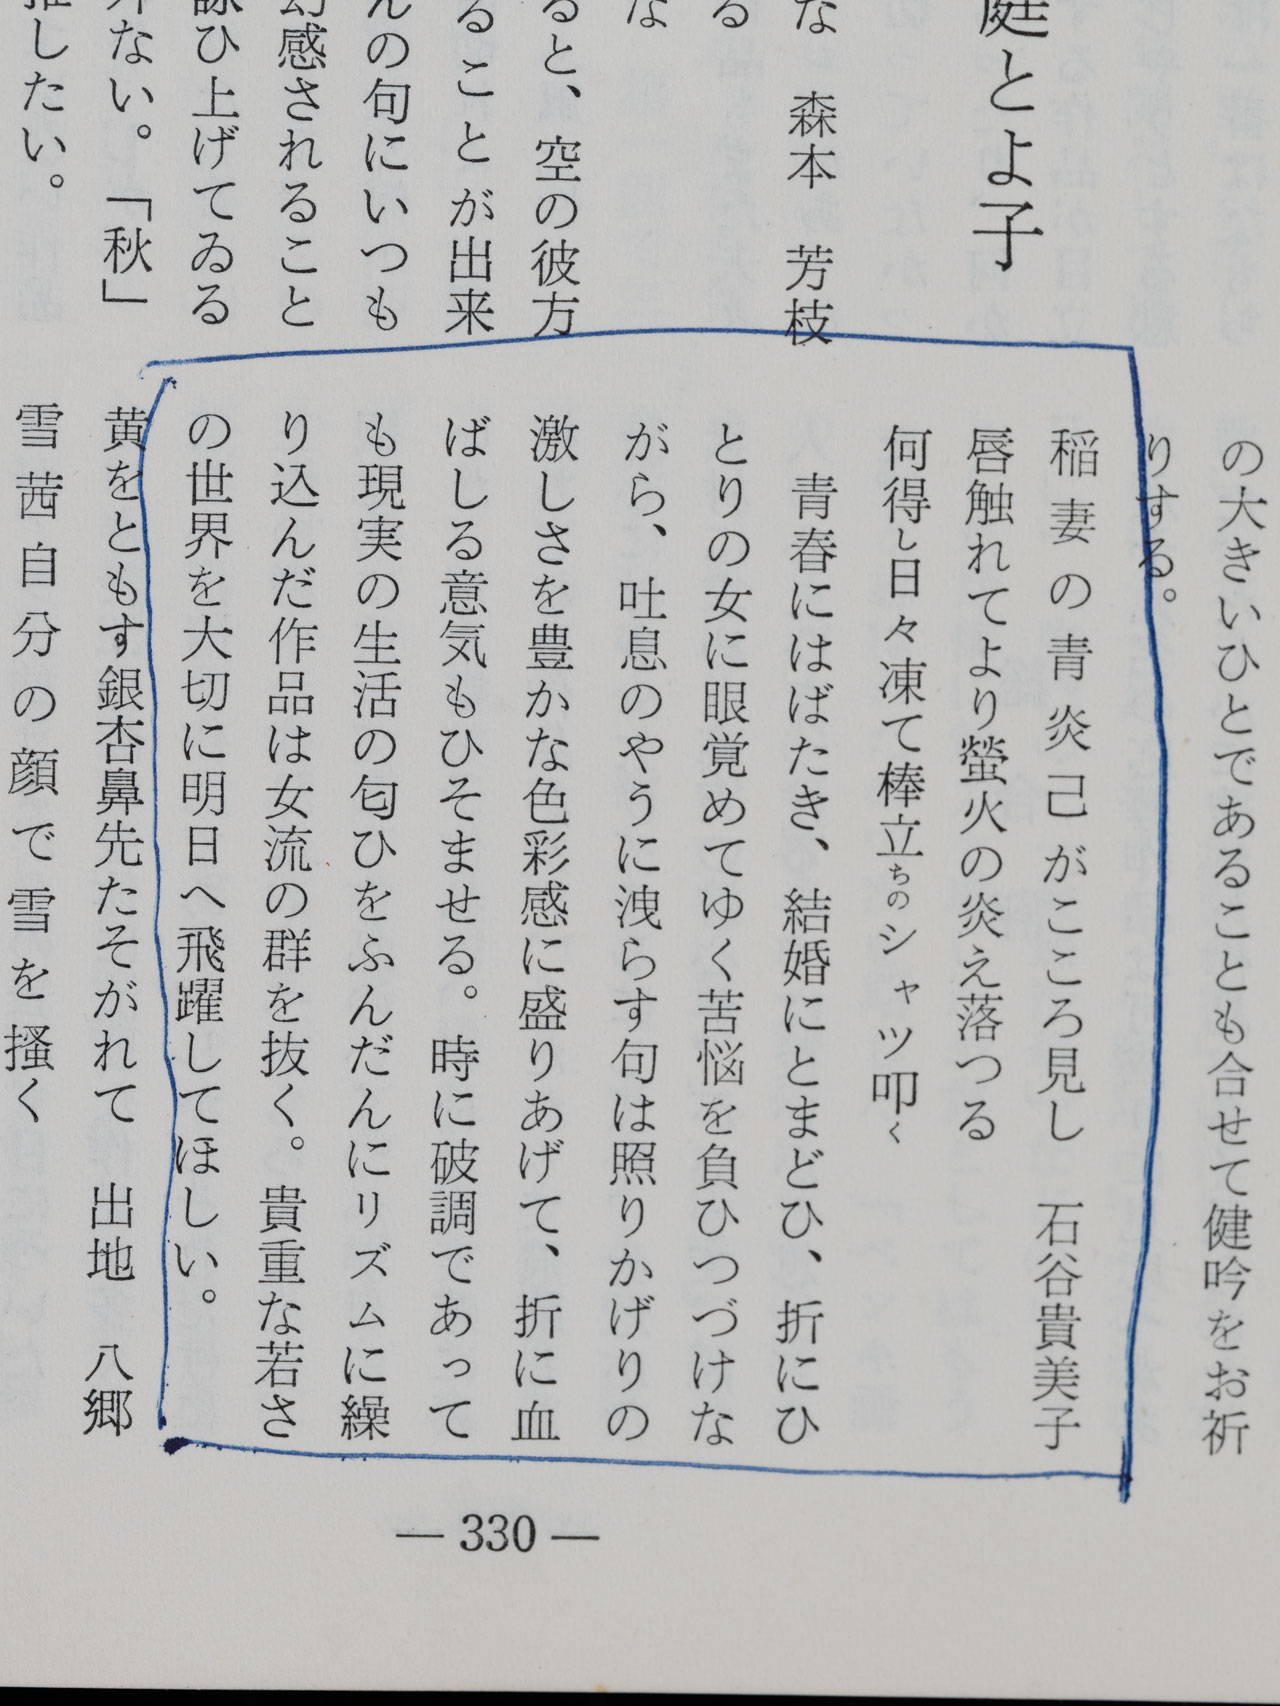 庭とよ子
な　森本　芳枝
る
な
ると、空の彼方
ることが出来
んの句にいつも
幻感されること
詠ひ上げてゐる
外ない。「秋」
推したい。
の大きいひとであることも合せて健吟をお祈
りする。
稲妻の青炎己がこころ見し　石谷貴美子
唇触れてより螢火の炎え落つる
何得し日々凍て棒立ちのシャツ叩く
青春にはばたき、結婚にとまどひ、折にひ
とりの女に眼覚めてゆく苦悩を負ひつづけな
がら、吐息のやうに洩らす句は照りかげりの
激しさを豊かな色彩感に盛りあげて、折に血
ばしる意気もひそませる。時に破調であって
も現実の生活の匂ひをふんだんにリズムに繰
り込んだ作品は女流の群を抜く。貴重な若さ
の世界を大切に明日へ飛躍してほしい。
黄をともす銀杏鼻先たそがれて　出地　八郷
雪茜自分の顔で雪を掻く
— 330 —